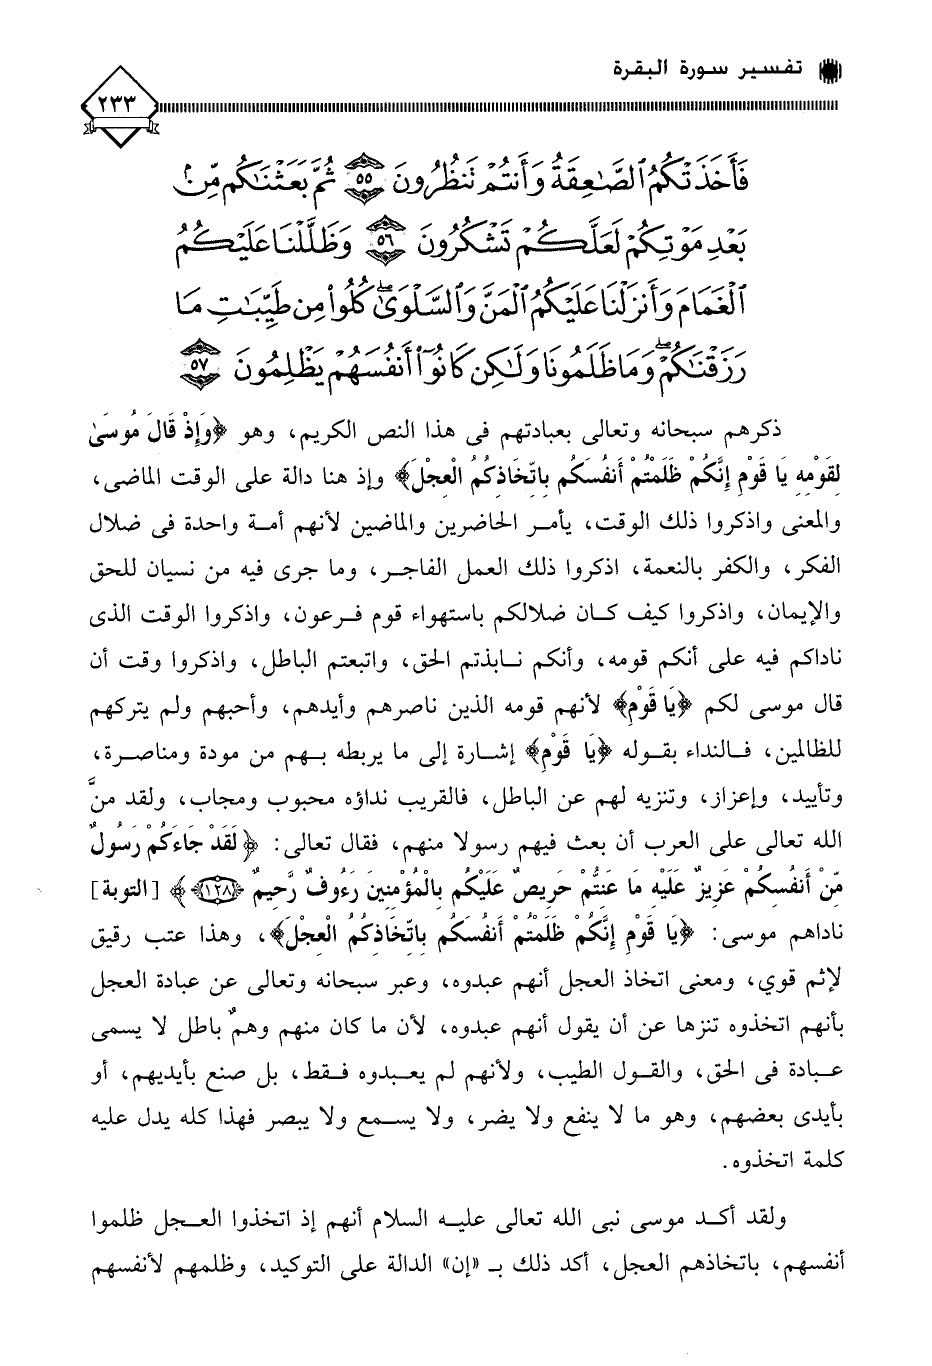 تفسير سورة البقرة
٢٣٣
فَأَخَذَتْكُمُ ٱلصَّٰعِقَةُ وَأَنتُمْ تَنظُرُونَ ٥٥ ثُمَّ بَعَثْنَٰكُم مِّنۢ
بَعْدِ مَوْتِكُمْ لَعَلَّكُمْ تَشْكُرُونَ ٥٦ وَظَلَّلْنَا عَلَيْكُمُ
ٱلْغَمَامَ وَأَنزَلْنَا عَلَيْكُمُ ٱلْمَنَّ وَٱلسَّلْوَىٰۖ كُلُوا۟ مِن طَيِّبَٰتِ مَا
رَزَقْنَٰكُمْۖ وَمَا ظَلَمُونَا وَلَٰكِن كَانُوٓا۟ أَنفُسَهُمْ يَظْلِمُونَ ٥٧
ذكرهم سبحانه وتعالى بعبادتهم فى هذا النص الكريم، وهو ﴿وَإِذْ قَالَ مُوسَىٰ
لِقَوْمِهِ يَا قَوْمِ إِنَّكُمْ ظَلَمْتُمْ أَنفُسَكُم بِاتِّخَاذِكُمُ الْعِجْلَ﴾ وإذ هنا دالة على الوقت الماضى،
والمعنى واذكروا ذلك الوقت، يأمر الحاضرين والماضين لأنهم أمة واحدة فى ضلال
الفكر، والكفر بالنعمة، اذكروا ذلك العمل الفاجر، وما جرى فيه من نسيان للحق
والإيمان، واذكروا كيف كان ضلالكم باستهواء قوم فرعون، واذكروا الوقت الذى
ناداكم فيه على أنكم قومه، وأنكم نابذتم الحق، واتبعتم الباطل، واذكروا وقت أن
قال موسى لكم ﴿يَا قَوْمِ﴾ لأنهم قومه الذين ناصرهم وأيدهم، وأحبهم ولم يتركهم
للظالمين، فالنداء بقوله ﴿يَا قَوْمِ﴾ إشارة إلى ما يربطه بهم من مودة ومناصرة،
وتأييد، وإعزاز، وتنزيه لهم عن الباطل، فالقريب نداؤه محبوب ومجاب، ولقد منَّ
الله تعالى على العرب أن بعث فيهم رسولا منهم، فقال تعالى: ﴿لَقَدْ جَاءَكُمْ رَسُولٌ
مِّنْ أَنفُسِكُمْ عَزِيزٌ عَلَيْهِ مَا عَنِتُّمْ حَرِيصٌ عَلَيْكُم بِالْمُؤْمِنِينَ رَءُوفٌ رَّحِيمٌ ١٢٨﴾ [التوبة]
ناداهم موسى: ﴿يَا قَوْمِ إِنَّكُمْ ظَلَمْتُمْ أَنفُسَكُم بِاتِّخَاذِكُمُ الْعِجْلَ﴾، وهذا عتب رقيق
لإثم قوي، ومعنى اتخاذ العجل أنهم عبدوه، وعبر سبحانه وتعالى عن عبادة العجل
بأنهم اتخذوه تنزها عن أن يقول أنهم عبدوه، لأن ما كان منهم وهمٌ باطل لا يسمى
عبادة فى الحق، والقول الطيب، ولأنهم لم يعبدوه فقط، بل صنع بأيديهم، أو
بأيدى بعضهم، وهو ما لا ينفع ولا يضر، ولا يسمع ولا يبصر فهذا كله يدل عليه
كلمة اتخذوه.
ولقد أكد موسى نبى الله تعالى عليه السلام أنهم إذ اتخذوا العجل ظلموا
أنفسهم، باتخاذهم العجل، أكد ذلك بـ «إن» الدالة على التوكيد، وظلمهم لأنفسهم